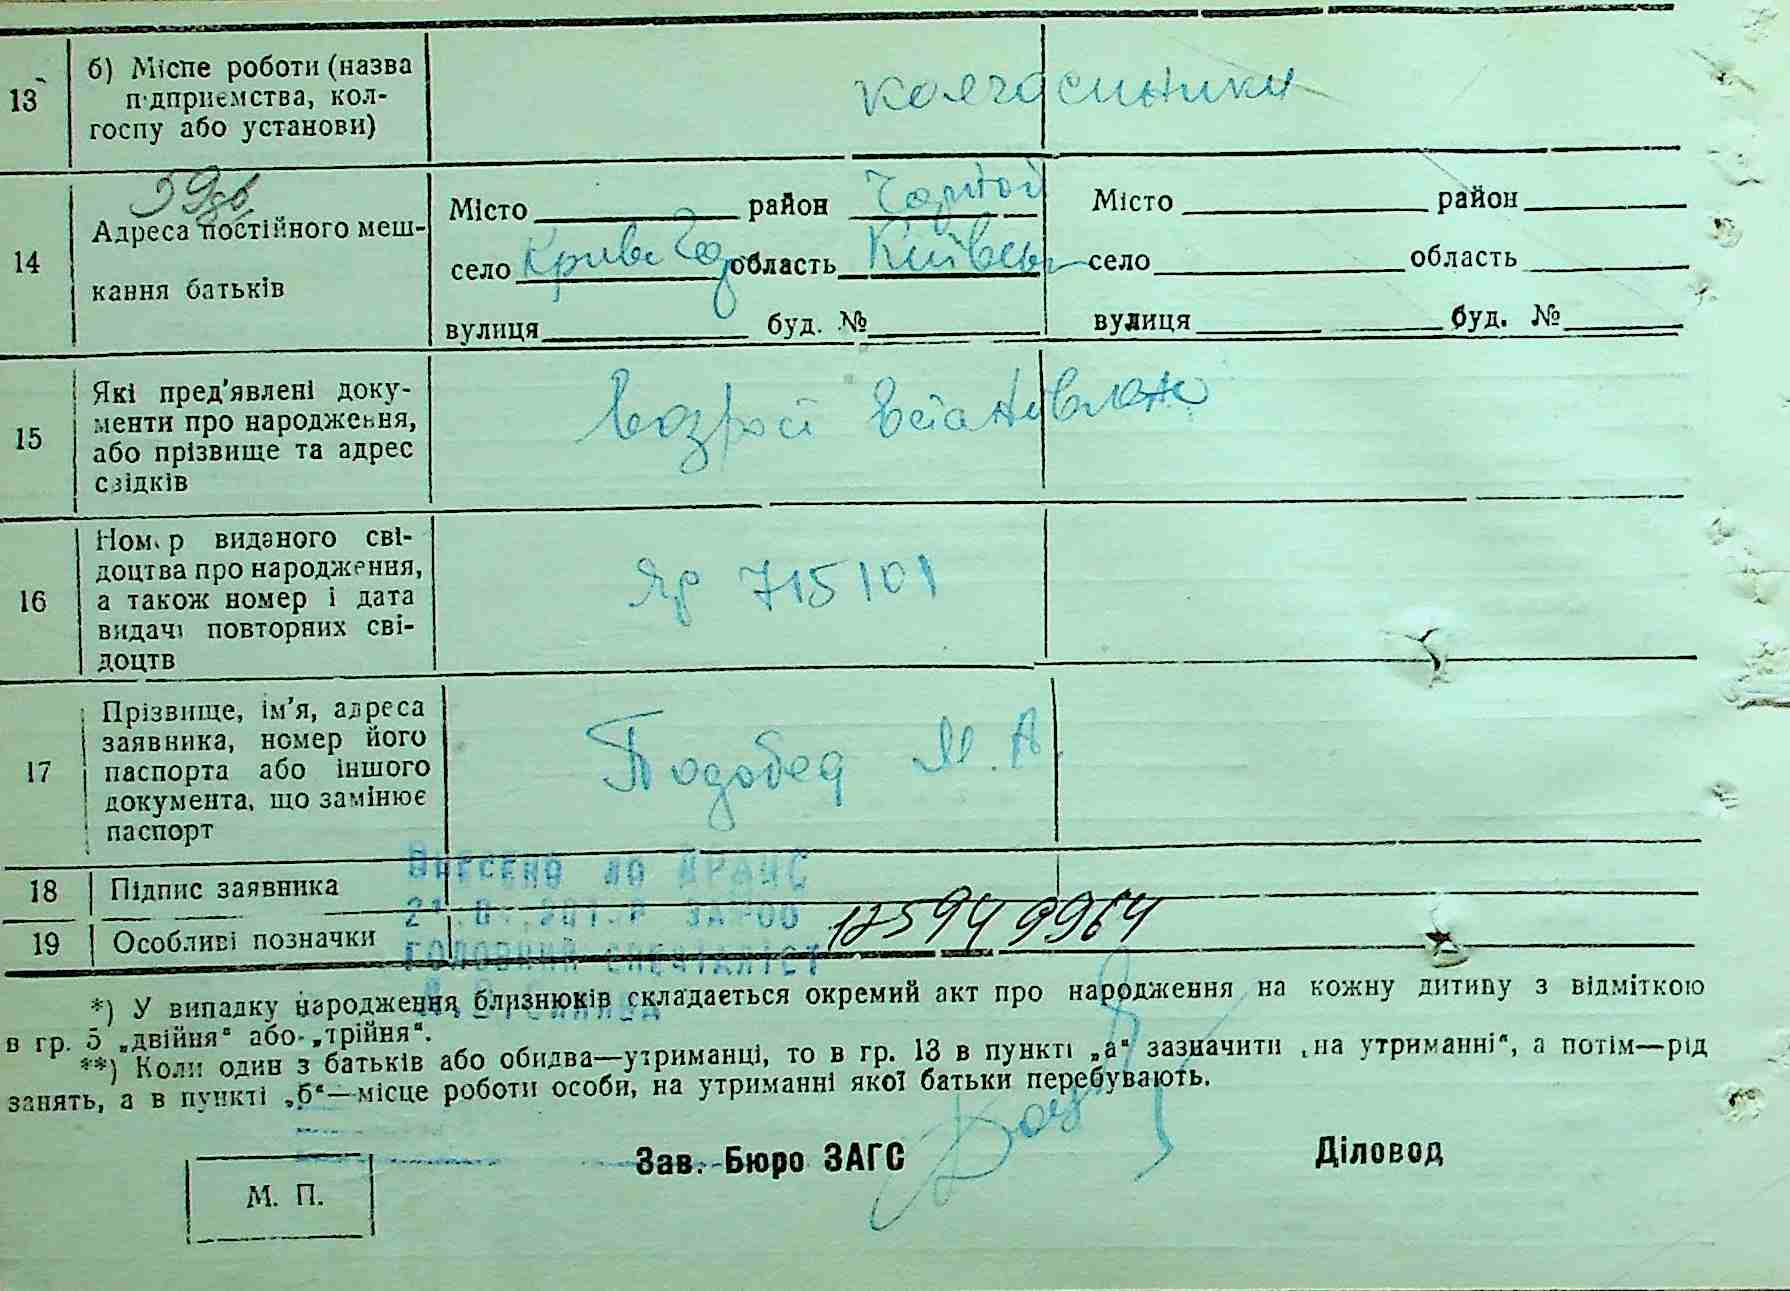 13 б) Місце роботи (назва
підприємства, кол-
госпу або установи)
14 Адреса постійного меш-
кання батьків
Місто район
село Крива область Київськ
вулиця буд. №
Місто район
село область
вулиця буд. №
15 Які пред'явлені доку-
менти про народження,
або прізвище та адрес
свідків
Возраст
16 Номер виданого сві-
доцтва про народження,
а також номер і дата
видачі повторних сві-
доцтв
Яр 715101
17 Прізвище, ім'я, адреса
заявника, номер його
паспорта або іншого
документа, що замінює
паспорт
Подобед М. А.
18 Підпис заявника
19 Особливі позначки
Внесено до ДРАЦС
головний спеціаліст
*) У випадку народження близнюків складається окремий акт про народження на кожну дитину з відміткою
в гр. 5 „двійня“ або „трійня“.
**) Коли один з батьків або обидва—утриманці, то в гр. 13 в пункті „а“ зазначити „на утриманні“, а потім—рід
занять, а в пункті „б“—місце роботи особи, на утриманні якої батьки перебувають.
Зав. Бюро ЗАГС
Діловод
М. П.